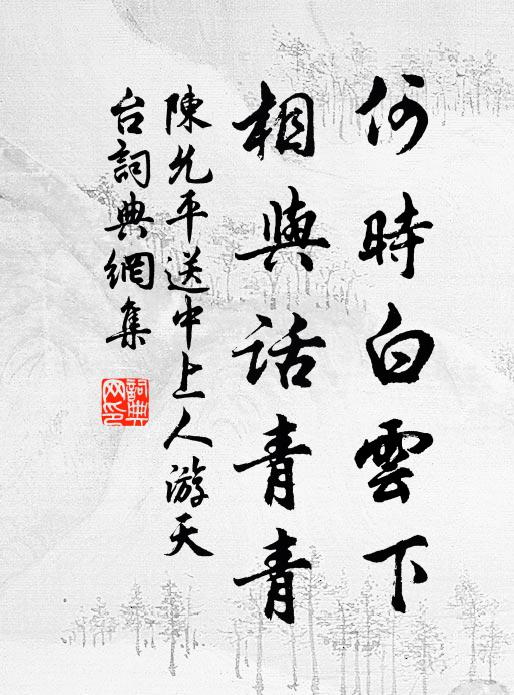 何時白雲下
相與話青青
陳允平送中上人游天
台詞典網集
詞典
网印